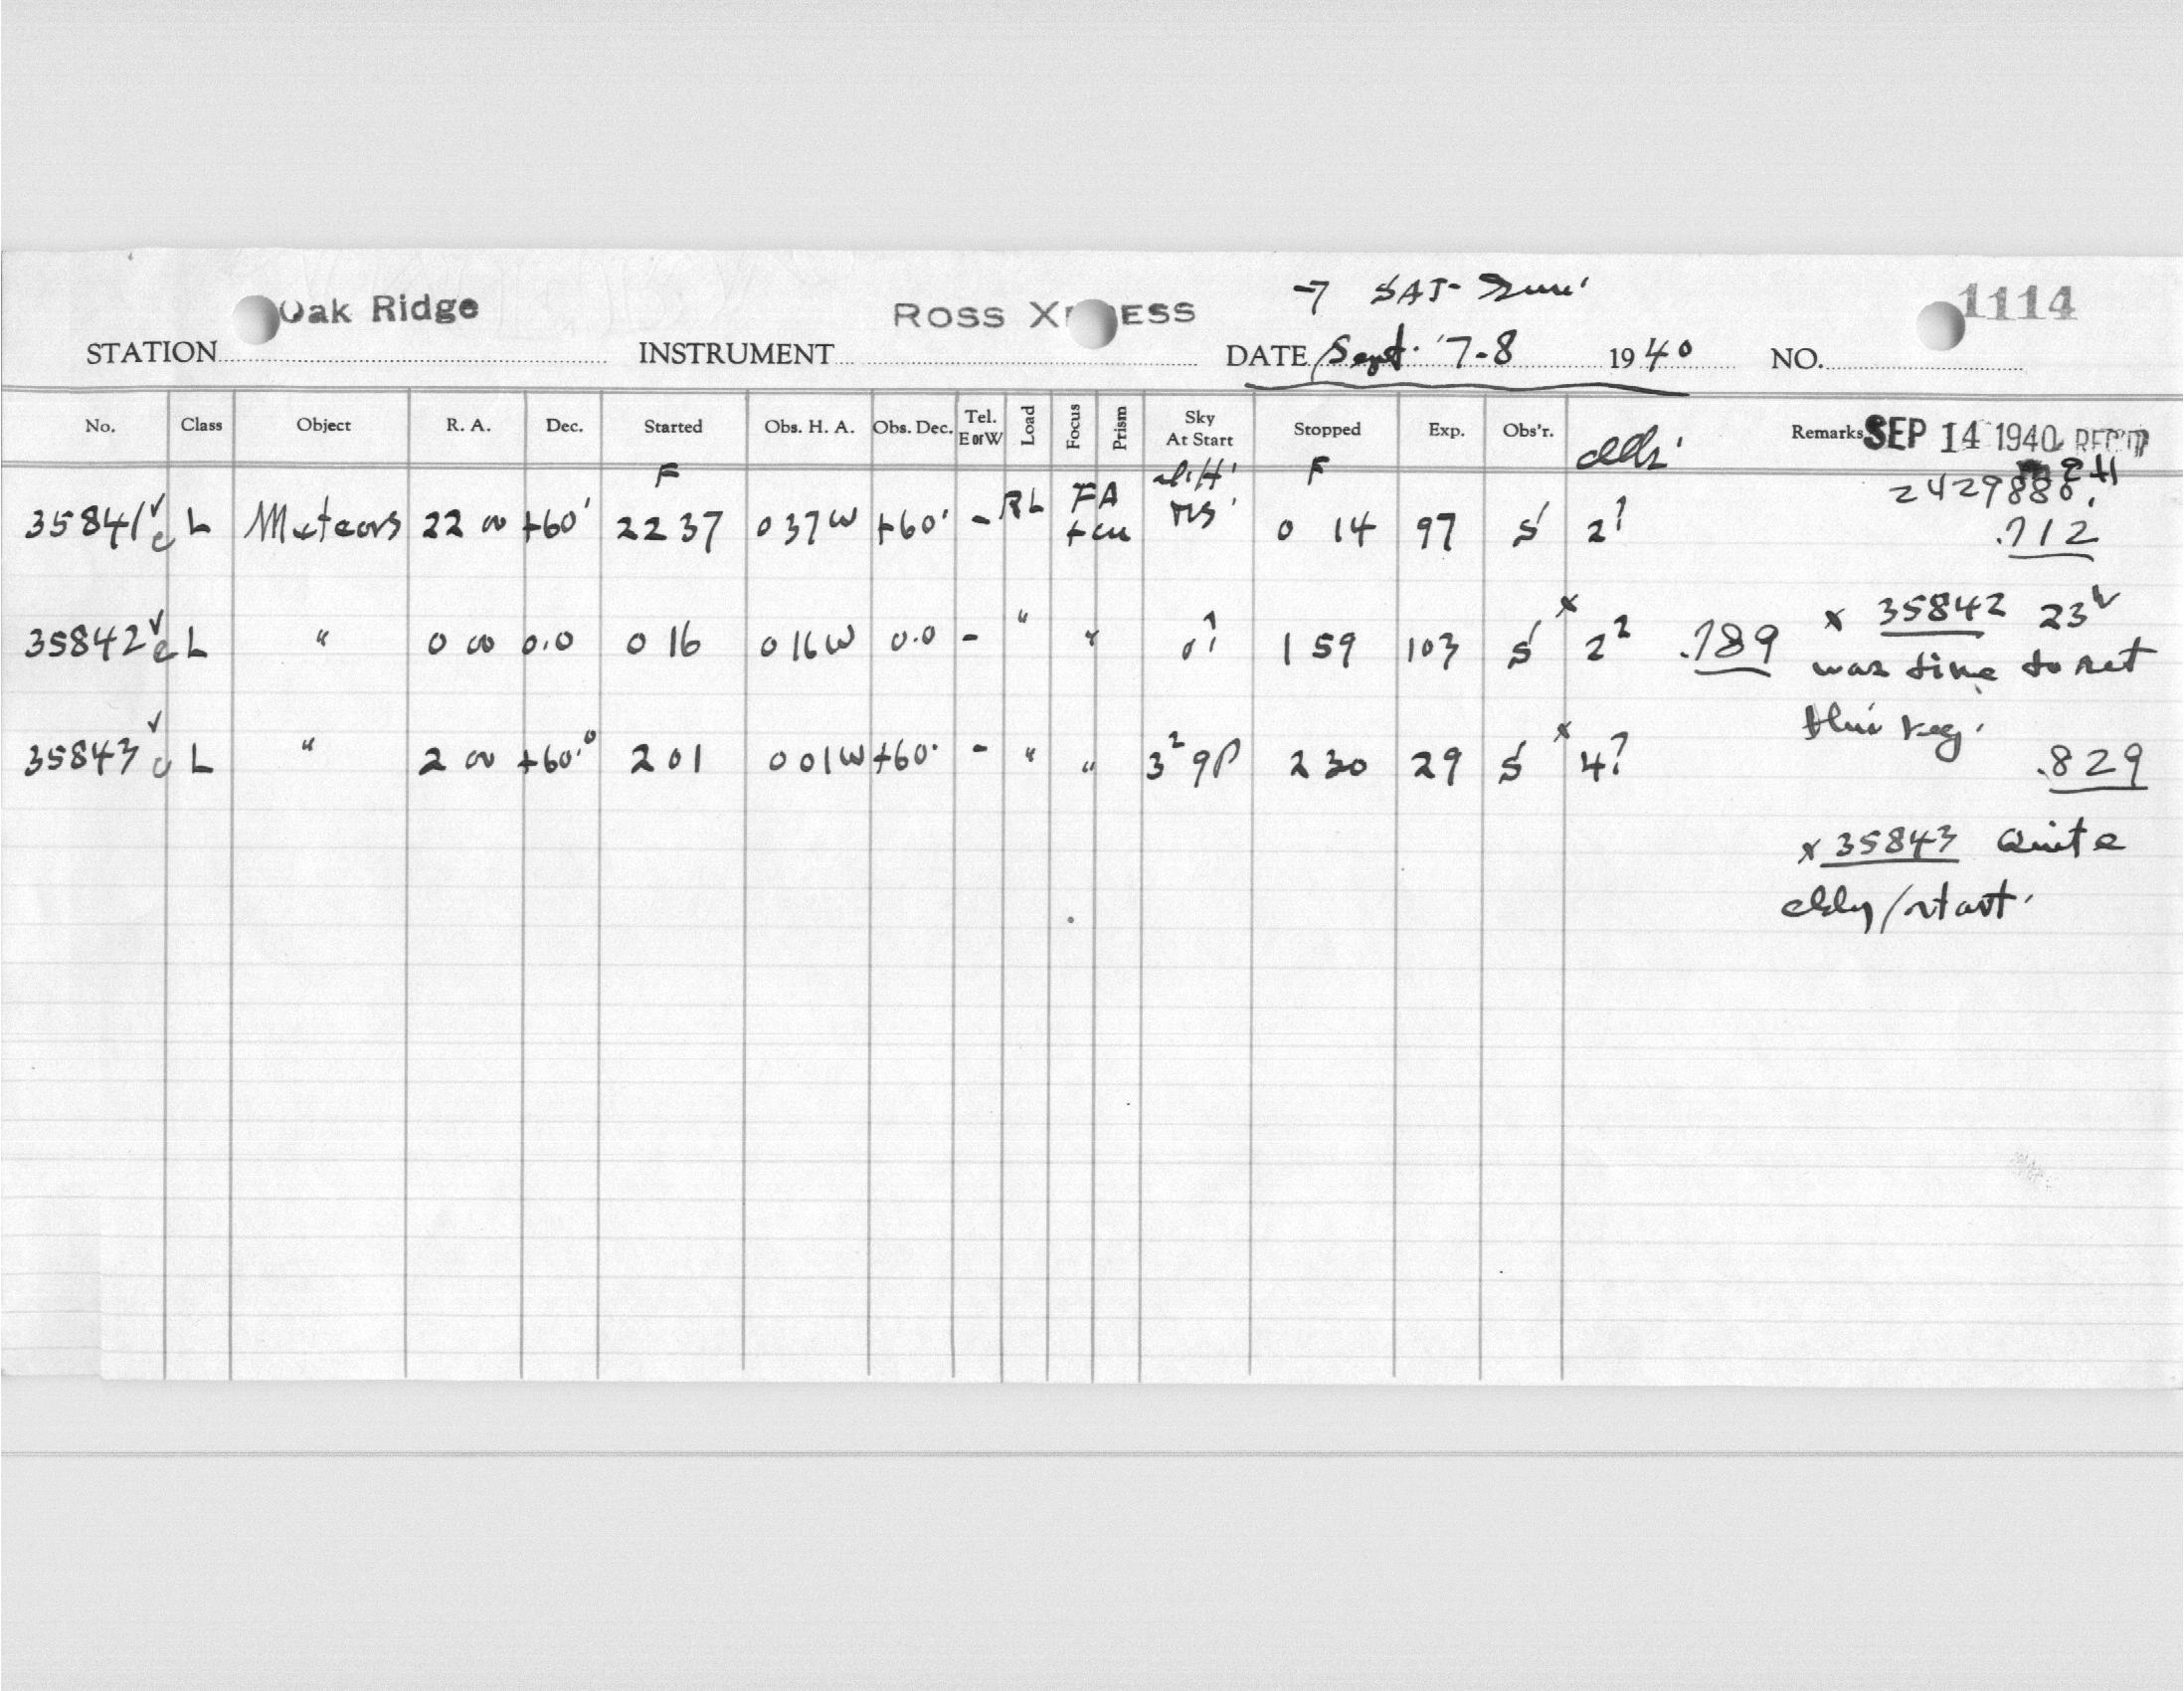 Oak Ridge ROSS X ESS SAT- 1114
STATION INSTRUMENT DATE Sept. 7-8 1940 NO.
No. Class Object R. A. Dec. Started Obs. H. A. Obs. Dec. Tel. E or W Load Focus Prism Sky At Start Stopped Exp. Obs'r. Remarks SEP 14 1940 REC'D
F F
35841 L Meteors 22 00 +60 22 37 0 37W +60 - RL FA 0 14 97 S 2? 2429880. .712
35842 L " 0 00 0.0 0 16 0 16W 0.0 - " " 1 59 103 S x 2² .789 x 35842 23h
was time to set
this reg.
35843 L " 2 00 +60.0 2 01 0 01W +60 - " " 3² 9P 2 30 29 S x 4? .829
x 35843 Quite
cldy/start.